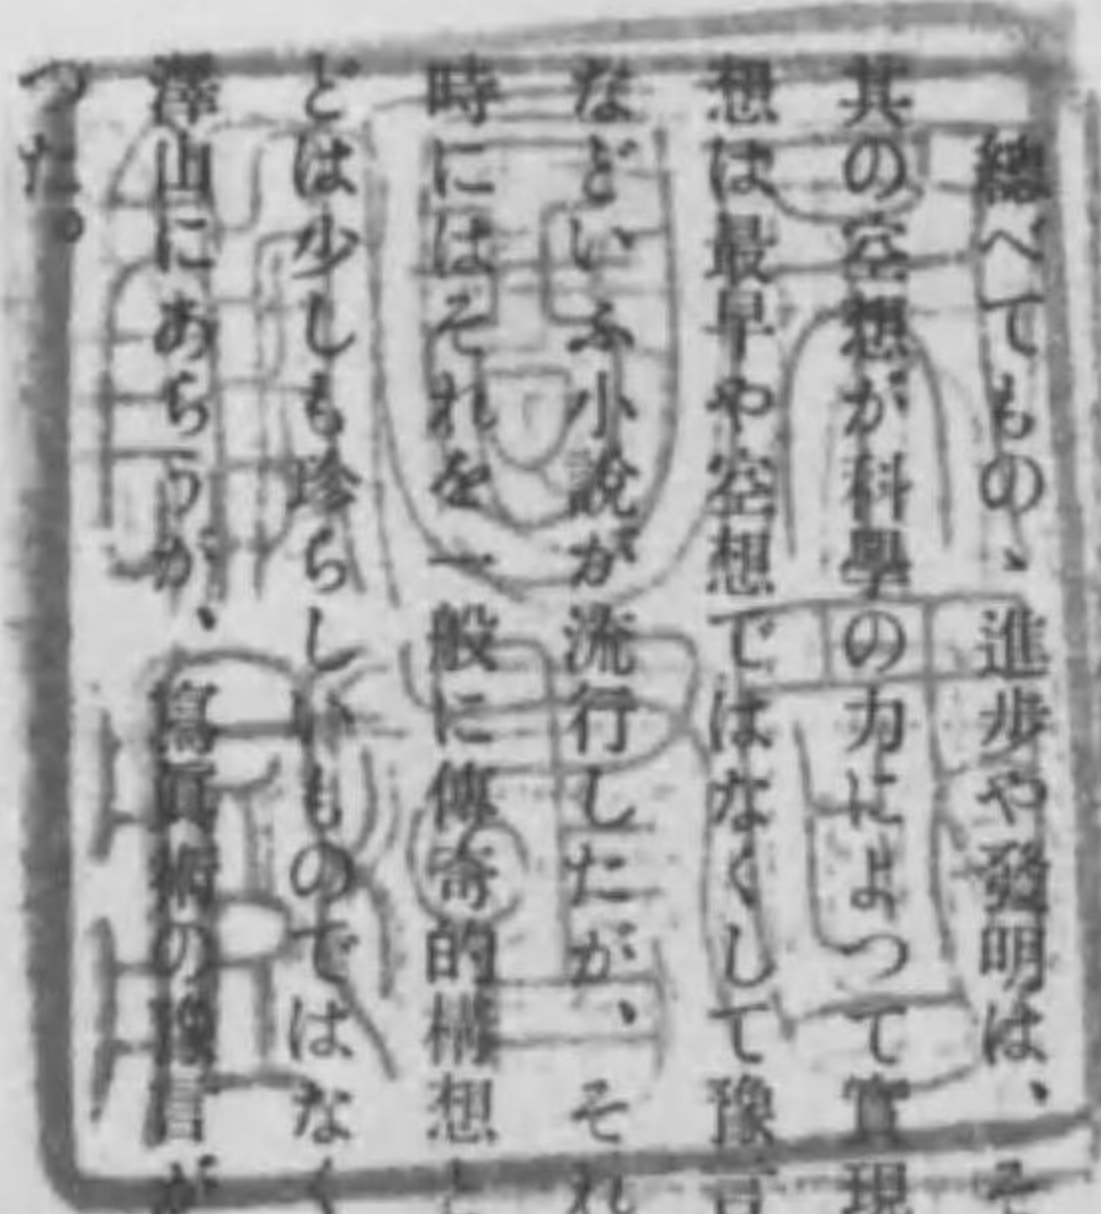 總べてもの、進歩や發明は、そ
其の空想が科學の力によつて實現
想は最早や空想ではなくして豫言
などいふ小說が流行したが、それ
時にはそれを一般に傳奇的構想と
とは少しも珍らしいものではなく
澤山にあちうが、寫眞術の豫言が
つた。